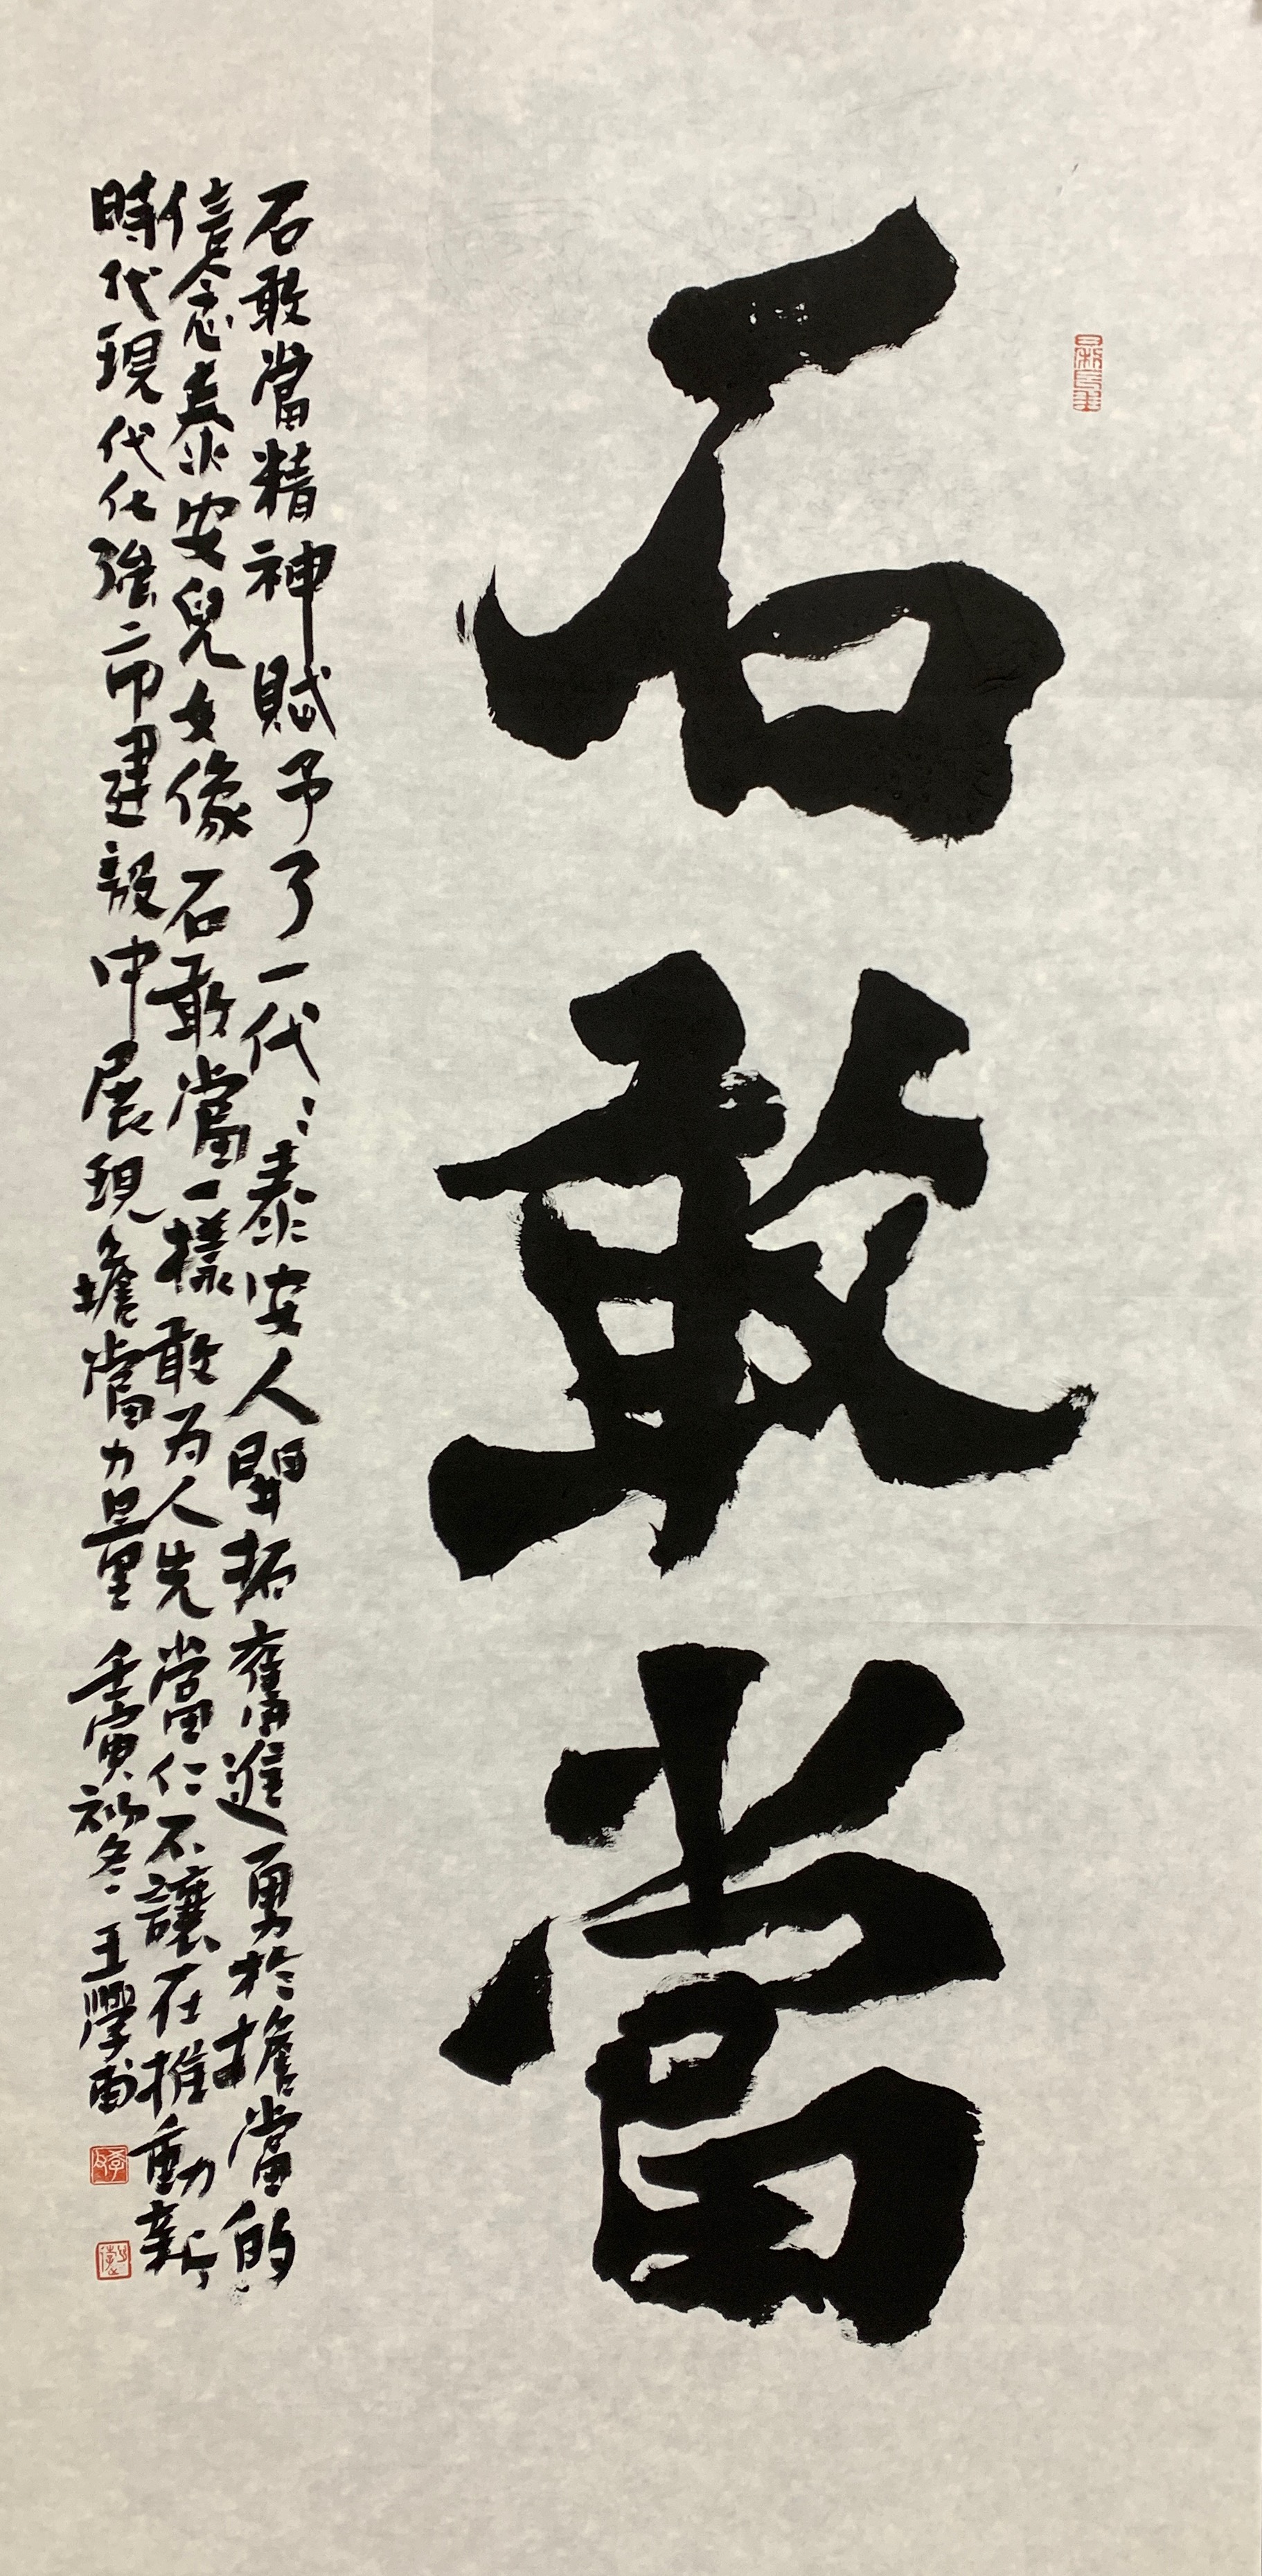 石敢當
石敢當精神賦予了一代〻泰安人開拓奮進勇於擔當的
信念泰安兒女像石敢當一樣敢为人先當仁不讓在推動新
時代現代化強市建設中展現擔當力量 壬寅初冬 王學